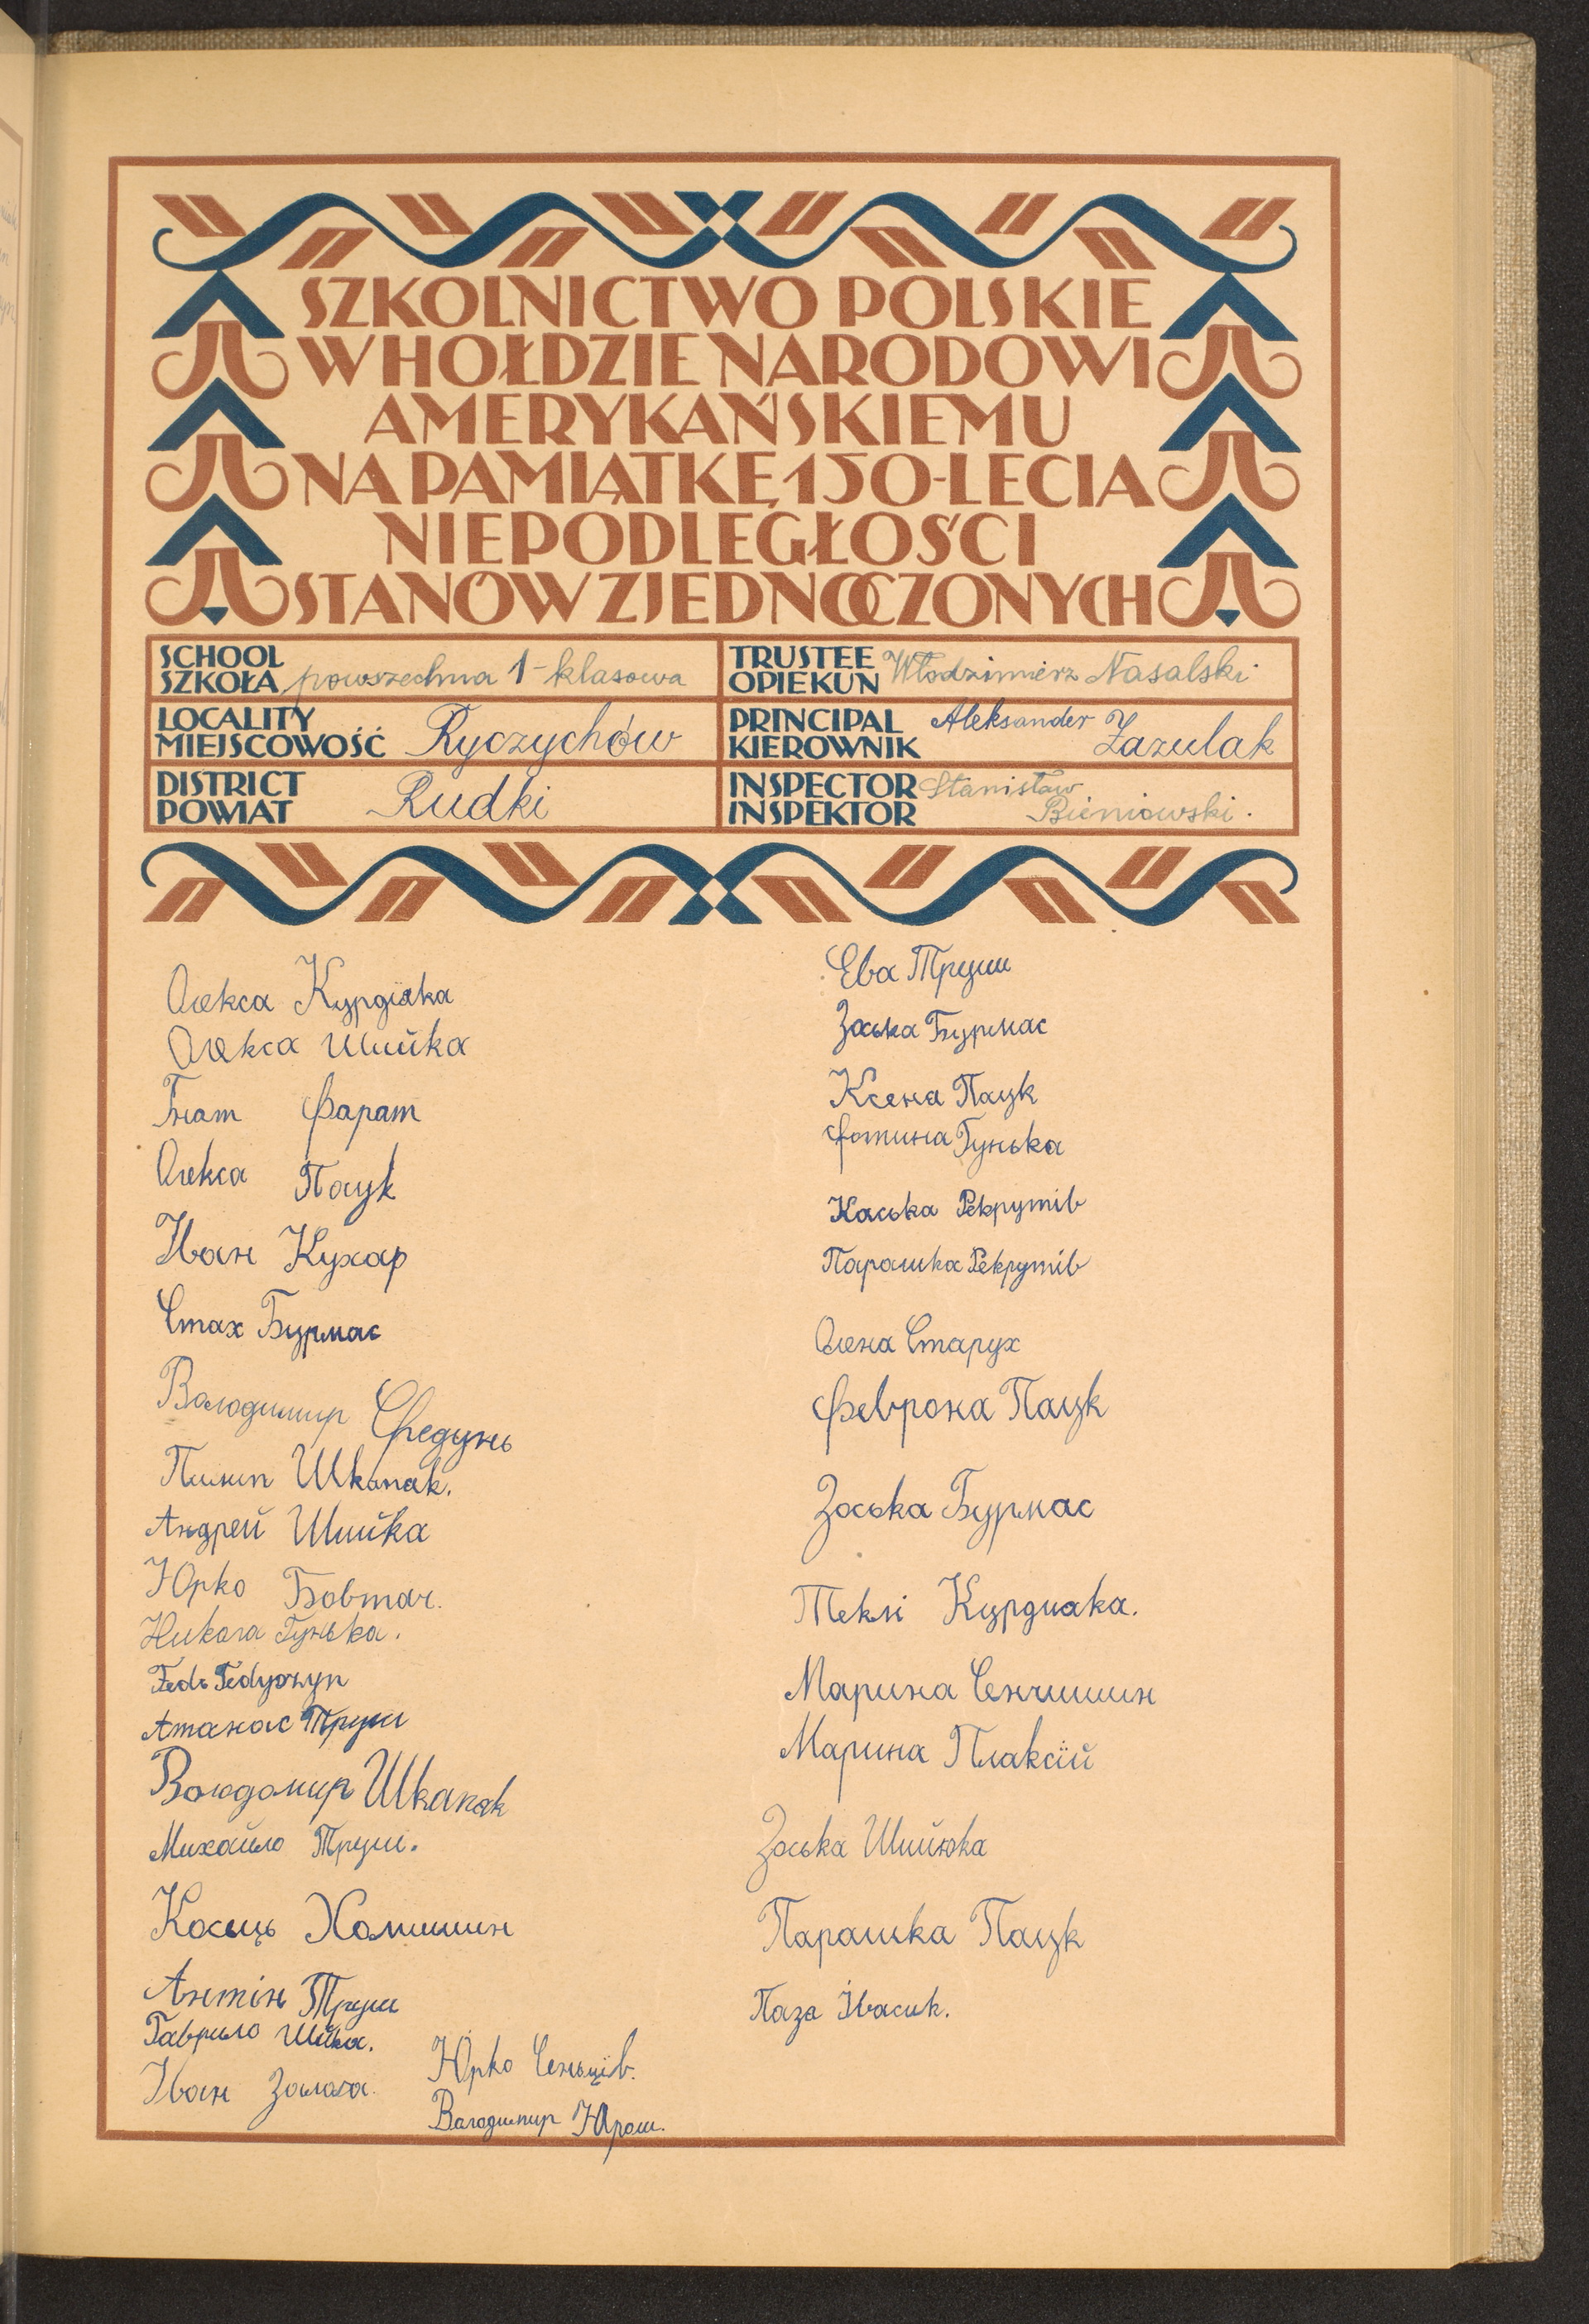 SZKOLNICTWO POLSKIE
W HOŁDZIE NARODOWI
AMERYKAŃSKIEMU
NA PAMIĄTKĘ 150-LECIA
NIEPODLEGŁOŚCI
STANÓW ZJEDNOCZONYCH
SCHOOL
SZKOŁA powszechna 1-klasowa
TRUSTEE
OPIEKUN Włodzimierz Nasalski
LOCALITY
MIEJSCOWOŚĆ Ryczychów
PRINCIPAL
KIEROWNIK Aleksander Zazulak
DISTRICT
POWIAT Rudki
INSPECTOR
INSPEKTOR Stanisław Bieniowski.
Олекса Курдіяка
Олекса Шийка
Гнат Фарат
Олекса Пацук
Іван Кухар
Стах Бурмас
Володимир Федунь
Пилип Шкапак.
Андрей Шийка
Юрко Бовтач.
Никола Гунька.
Fedь Fedyczyn
Атанас Труш
Володомир Шкапак
Михайло Труш.
Косьць Хомишин
Антін Труш
Гаврило Шийка.
Іван Залога.
Юрко Сеньців.
Володимир Юрош.
Ева Труш
Зоська Бурмас
Ксеня Пацук
Фотина Гунька
Каська Рекрутів
Парашка Рекрутів
Олена Старух
Феврона Пацук
Зоська Бурмас
Теклі Курдиака.
Марина Сенчишин
Марина Плаксій
Зоська Шийока
Парашка Пацук
Паза Івасик.